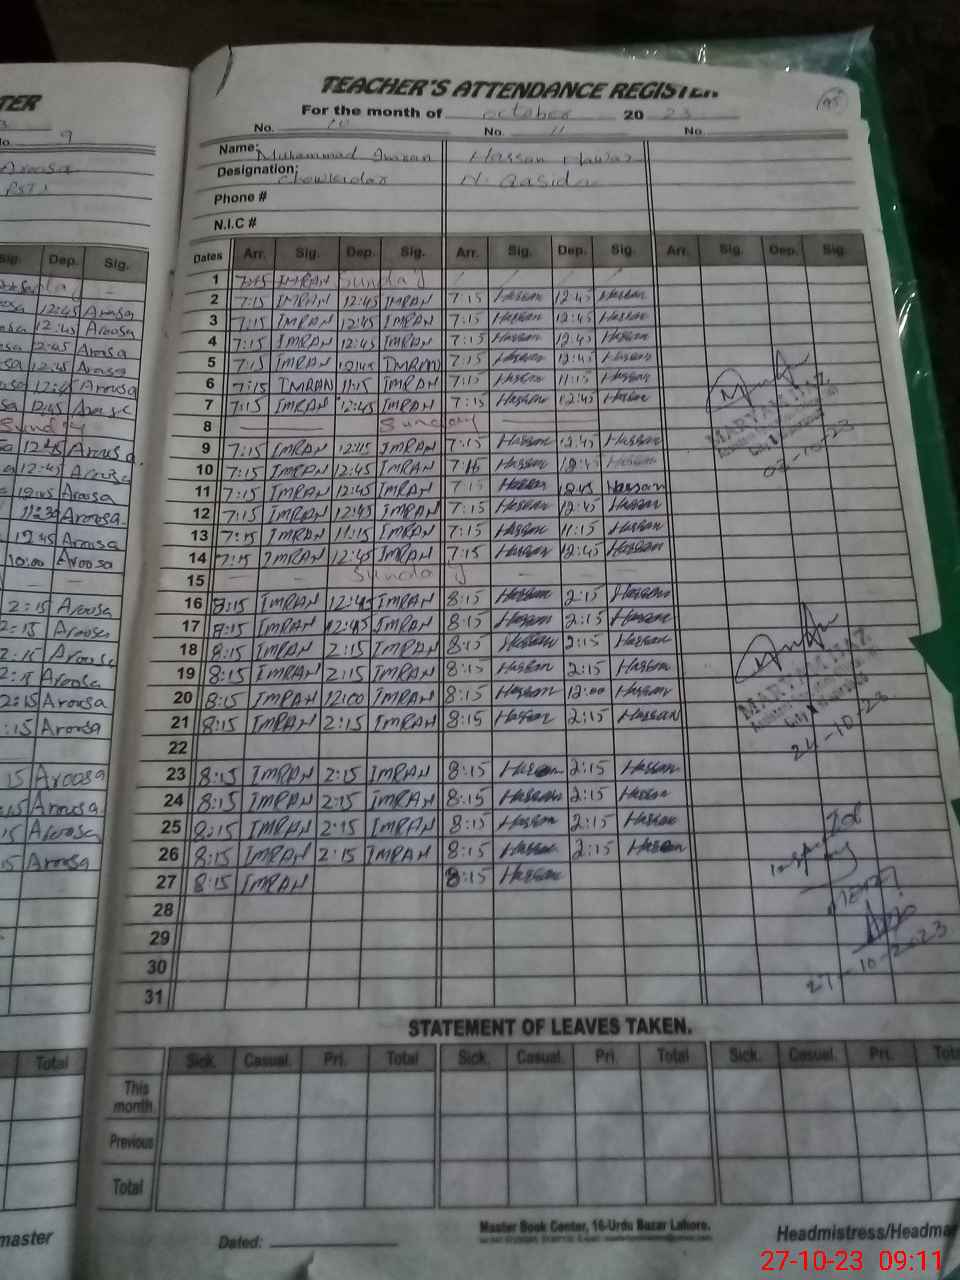 TER
TEACHER'S ATTENDANCE REGISTER
For the month of october 20 23
No. 9
No. 10 No. 11 No.
Name: Muhammad Imran Hassan Nawaz
Aroosa
Designation: Chowkidar N. Qasida
PST
Phone #
N.I.C #
Sig. Dep. Sig.
Dates Arr. Sig. Dep. Sig. Arr. Sig. Dep. Sig. Arr. Sig. Dep. Sig.
1 7:15 IMRAN Sunday
12:45 Aroosa 2 7:15 IMRAN 12:45 IMRAN 7:15 Hassan 12:45 Hassan
12:45 Aroosa 3 7:15 IMRAN 12:45 IMRAN 7:15 Hassan 12:45 Hassan
12:45 Aroosa 4 7:15 IMRAN 12:45 IMRAN 7:15 Hassan 12:45 Hassan
12:45 Aroosa 5 7:15 IMRAN 12:45 IMRAN 7:15 Hassan 12:45 Hassan
12:45 Aroosa 6 7:15 IMRAN 11:15 IMRAN 7:15 Hassan 11:15 Hassan
12:45 Aroosa 7 7:15 IMRAN 12:45 IMRAN 7:15 Hassan 12:45 Hassan
Sunday 8 Sunday
12:45 Aroosa 9 7:15 IMRAN 12:15 IMRAN 7:15 Hassan 12:45 Hassan
12:45 Aroosa 10 7:15 IMRAN 12:45 IMRAN 7:15 Hassan 12:45 Hassan
12:45 Aroosa 11 7:15 IMRAN 12:45 IMRAN 7:15 Hassan 12:45 Hassan
11:30 Aroosa 12 7:15 IMRAN 12:45 IMRAN 7:15 Hassan 12:45 Hassan
12:45 Aroosa 13 7:15 IMRAN 11:15 IMRAN 7:15 Hassan 11:15 Hassan
10:00 Aroosa 14 7:15 IMRAN 12:45 IMRAN 7:15 Hassan 12:45 Hassan
15 Sunday
2:15 Aroosa 16 8:15 IMRAN 12:45 IMRAN 8:15 Hassan 2:15 Hassan
2:15 Aroosa 17 8:15 IMRAN 12:45 IMRAN 8:15 Hassan 2:15 Hassan
2:15 Aroosa 18 8:15 IMRAN 2:15 IMRAN 8:15 Hassan 2:15 Hassan
2:15 Aroosa 19 8:15 IMRAN 2:15 IMRAN 8:15 Hassan 2:15 Hassan
2:15 Aroosa 20 8:15 IMRAN 12:00 IMRAN 8:15 Hassan 12:00 Hassan
:15 Aroosa 21 8:15 IMRAN 2:15 IMRAN 8:15 Hassan 2:15 Hassan
22
15 Aroosa 23 8:15 IMRAN 2:15 IMRAN 8:15 Hassan 2:15 Hassan
:15 Aroosa 24 8:15 IMRAN 2:15 IMRAN 8:15 Hassan 2:15 Hassan
15 Aroosa 25 8:15 IMRAN 2:15 IMRAN 8:15 Hassan 2:15 Hassan
15 Aroosa 26 8:15 IMRAN 2:15 IMRAN 8:15 Hassan 2:15 Hassan
27 8:15 IMRAN 8:15 Hassan
28
29
30
31
MARYAM IJAZ
07-10-23
MARYAM IJAZ
21-10-23
27-10-2023
STATEMENT OF LEAVES TAKEN.
Total Sick. Casual. Pri. Total Sick. Casual. Pri. Total Sick. Casual. Pri. Tot
This month
Previous
Total
master
Dated:
Master Book Center, 16-Urdu Bazar Lahore.
Headmistress/Headma
27-10-23 09:11